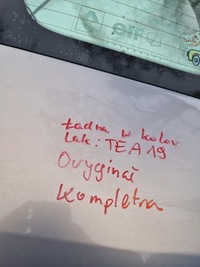 Ładna w kolor
Lak: TEA19
Oryginał
Kompletna